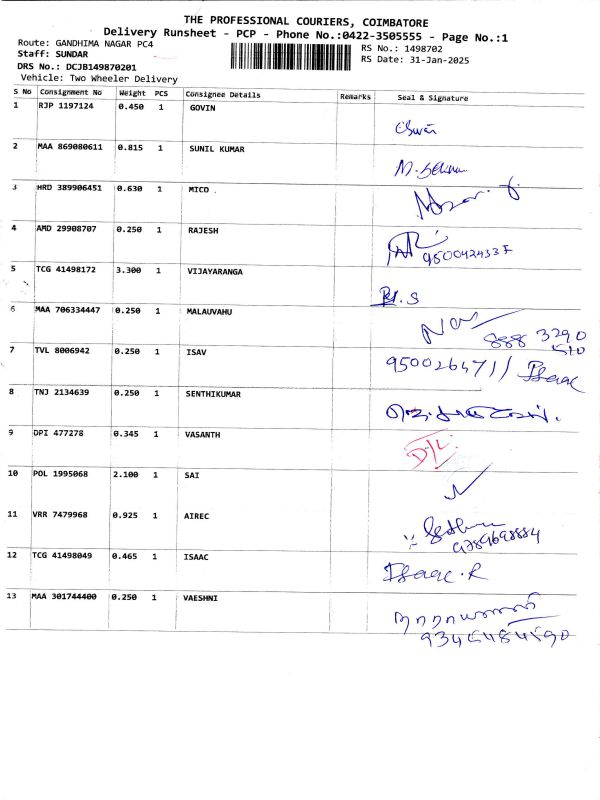 THE PROFESSIONAL COURIERS, COIMBATORE
Delivery Runsheet - PCP - Phone No.:0422-3505555 - Page No.:1
Route: GANDHIMA NAGAR PC4
RS No.: 1498702
Staff: SUNDAR
RS Date: 31-Jan-2025
DRS No.: DCJB149870201
Vehicle: Two Wheeler Delivery
S No Consignment No Weight PCS Consignee Details Remarks Seal & Signature
1 RJP 1197124 0.450 1 GOVIN
2 MAA 869080611 0.815 1 SUNIL KUMAR
3 HRD 389906451 0.630 1 MICO .
4 AMD 29908707 0.250 1 RAJESH
5 TCG 41498172 3.300 1 VIJAYARANGA
6 MAA 706334447 0.250 1 MALAUVAHU
888 3290
7 TVL 8006942 0.250 1 ISAV Isaac
8 TNJ 2134639 0.250 1 SENTHIKUMAR
9 DPI 477278 0.345 1 VASANTH D/L
10 POL 1995068 2.100 1 SAI
11 VRR 7479968 0.925 1 AIREC
9789698884
12 TCG 41498049 0.465 1 ISAAC Isaac.R
13 MAA 301744400 0.250 1 VAESHNI